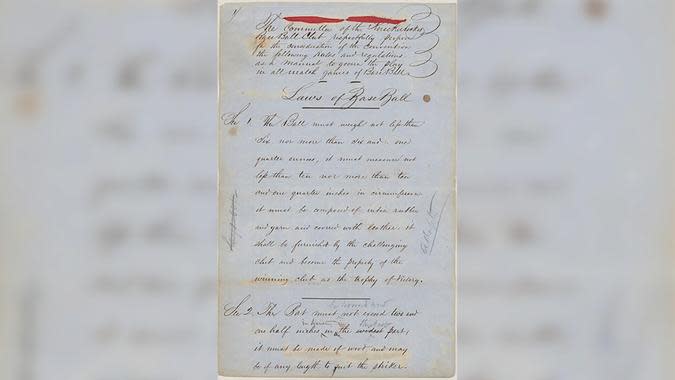 The Committee of the Knickerbocker
Base Ball Club respectfully propose
for the consideration of the convention
the following Rules and regulations
as a Manual to govern the play
in all match games of Base Ball.
Laws of Base Ball
Sec 1. The Ball must weigh not less than
Six nor more than Six and one
quarter ounces, it must measure not
less than ten nor more than ten
and one quarter inches in circumference
it must be composed of india rubber
and yarn and covered with leather. it
shall be furnished by the challenging
club and become the property of the
winning club as the trophy of victory.
Sec 2. The Bat must not exceed two and
one half inches in the widest part,
it must be made of wood, and may
be of any length to suit the striker.